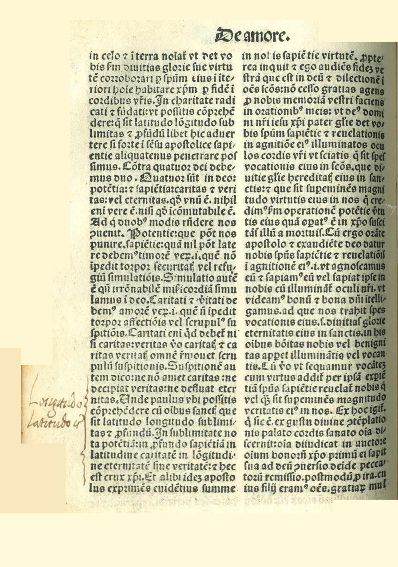 De amore.
in celo ⁊ i terra noiat̃ vt det vo
bis fm diuitias glorie sue virtu
tẽ corroborari ꝑ spũm eius i ite
riori hoĩe habitare xp̃m ꝑ fidẽ i
cordibus vr̃is. In charitate radi
cati ⁊ fũdati: vt possitis cõprehẽ
dere: q̃ sit latitudo lõgitudo sub
limitas ⁊ ꝓfũdũ libet hic aduer
tere si forte i sẽsu apostolice sapi
entie aliquatenus penetrare pos
simus. Cõtra quatuor dei debe
mus duo. Quatuor sũt in deo:
potẽtia: ⁊ sapiẽtia: caritas ⁊ veri
tas: vel eternitas. qd̓ vnũ ẽ. nihil
eni vere ẽ. nisi qd̓ icõmutabile ẽ.
Ad q̃ duobꝰ modis rñdere nos
Potentie: que põt nos
punire. sapiẽtie: qua nil põt late
re debemꝰ timorẽ
ĩpedit torpor securitat̃ vel refu
gũi simulatiõis. Simulatio autẽ
ẽ
lamus i deo. Caritati ⁊ vĩtati de
bemꝰ amorẽ
torpor affectiõis vel scrupulꝰ su
spitiõis. Caritati eni qd̓ debet ni
si caritas: veritas vo caritat̃ ⁊ ca
ritas veritat̃ omnẽ
pulũ suspitionis. Suspitionẽ au
tem dico: ne nõ amet caritas: ne
decipiat veritas: ne deficiat eter
nitas. Unde paulus vbi possitis
cõprehẽdere cũ oĩbus sanct̃ que
sit latitudo longitudo sublimi
tas ⁊ ꝓfundũ. In sublimitate no
ta potẽtiã: in ꝓfundo sapiẽtiã in
latitudine caritatẽ in lõgitudi
ne eternitatẽ siue veritatẽ: hec
est crux xp̃i. Et alibi idẽ aposto
lus exprimẽs euidẽtius summe
in nobis sapiẽtie virtutẽ. ꝓpte
rea inquit ⁊ ego audiẽs fidẽ ve
strã que est in deũ ⁊ dilectionẽ i
oẽs scõs: nõ cesso gratias agens
ꝓ nobis memoriã vestri faciens
in orationibꝰ meis: vt deꝰ domi
ni nr̃i iesu xp̃i pater glie det vo
bis spũm sapiẽtie ⁊ reuelationis
in agnitiõe eiꝰ illuminatos ocu
los cordis vr̃i vt sciatis q̃ sit spes
vocationis eius in scõs. que di
uitie glie hereditat̃ eius in san
ctis: ⁊ que sit supeminẽs magni
tudo virtutis eius in nos q̃ cre
dimꝰ fm operationẽ potẽtie vĩtu
tis eius quã opatꝰ ẽ in xp̃o susci
tãs illũ a mortuis. Cũ ergo orãte
apostolo ⁊ exaudiẽte deo datur
nobis spũs sapiẽtie ⁊ reuelatiõis
i agnitionẽ eiꝰ. i. vt agnoscamus
eũ ⁊ sapiamꝰ eũ vel sapiat ipse in
nobis cũ illuminãt̃ oculi nr̃i. vt
videamꝰ bonũ ⁊ bona dñi itelli
gamus. ad que nos trahit spes
vocationis eius. s. diuitias glorie
eternitatis eius in sanctis. in qui
oĩbus bõitas nobis vel benigni
tas appet illuminãtis vel vocan
tis. Cũ vo vt sequamur vocãtez
eum virtus addit̃ per ipsã expiẽ
tiam sapiẽtie vel bonitatis ꝓbat̃
vel q̃ sit supeminẽs magnitudo
veritatis eiꝰ in nos. Ex hoc igit̃
q̃ sic ẽ. ex gustu diuine cõtẽplatio
nis palato cordis sanato oĩa di
scernit: oĩa diiudicat in auctore
oium bonorũ xp̃o primũ ei sapit
sua ad deũ cõuersio deide pecca
torũ remissio. postmodũ ꝓ ira. cu
ius filij eramꝰ oẽs. gratiarꝫ mul
Longitudo
Latitudo